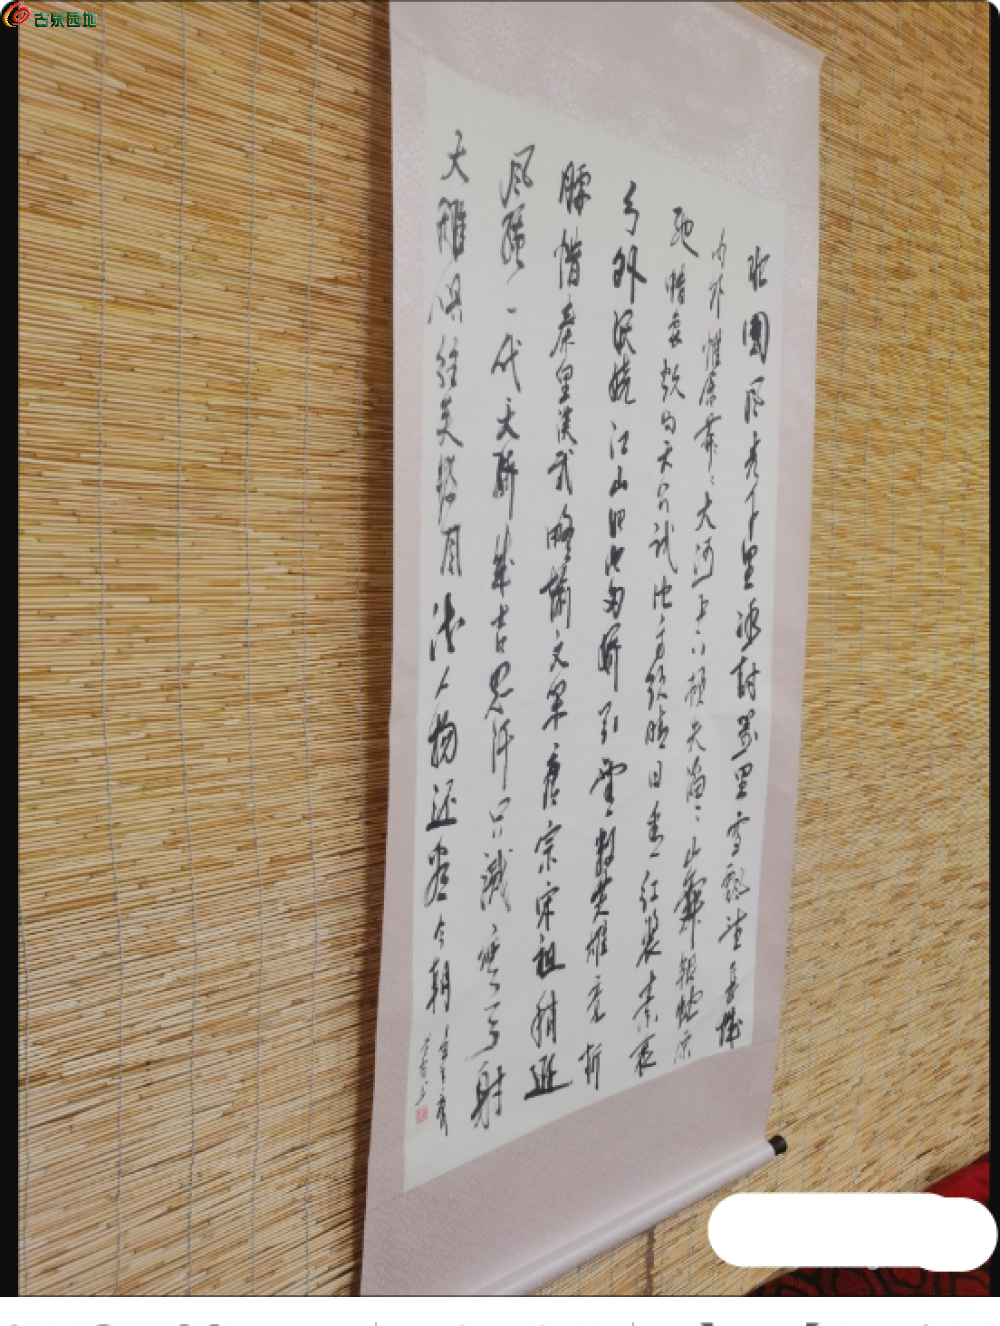 古泉园地
園风光千里冰封万里雪飄望長城
内外惟余莽々大河上下頓失滔々山舞銀蛇原
驰蜡象欲与天公试比高须晴日看红装素裹
分外妖娆江山如此多娇引無数英雄竞折
腰惜秦皇漢武略输文采唐宗宋祖稍逊
风骚一代天骄成吉思汗只識弯弓射
大雕俱往矣数风流人物还看今朝